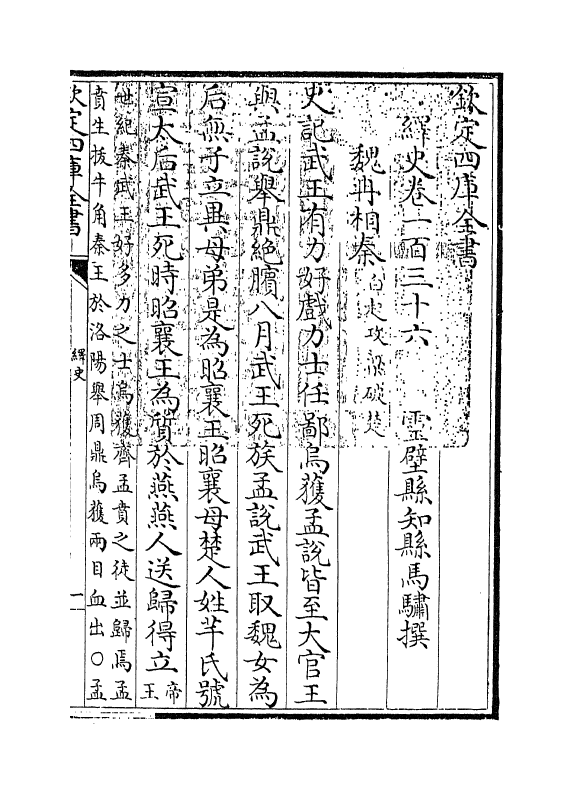 欽定四庫全書
繹史卷一百三十六　靈壁縣知縣馬驌撰
魏冉相秦白起攻梁破楚
史記武王有力好戲力士任鄙烏獲孟說皆至大官王
與孟說舉鼎絕臏八月武王死族孟說武王取魏女為
后無子立異母弟是為昭襄王昭襄母楚人姓芈氏號
宣太后武王死時昭襄王為質於燕燕人送歸得立帝王
世紀秦武王好多力之士烏獲齊孟賁之徒並歸焉孟
賁生拔牛角秦王於洛陽舉周鼎烏獲兩目血出○孟
欽定四庫全書
繹史
一